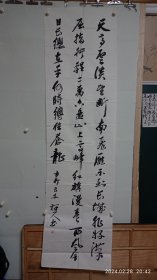 天高雲淡望断南飛雁不到长城非好漢
屈指行程二萬六盘山上高峰红旗漫卷西风今
日长缨在手何時缚住苍龍
2024.02.28 20:42